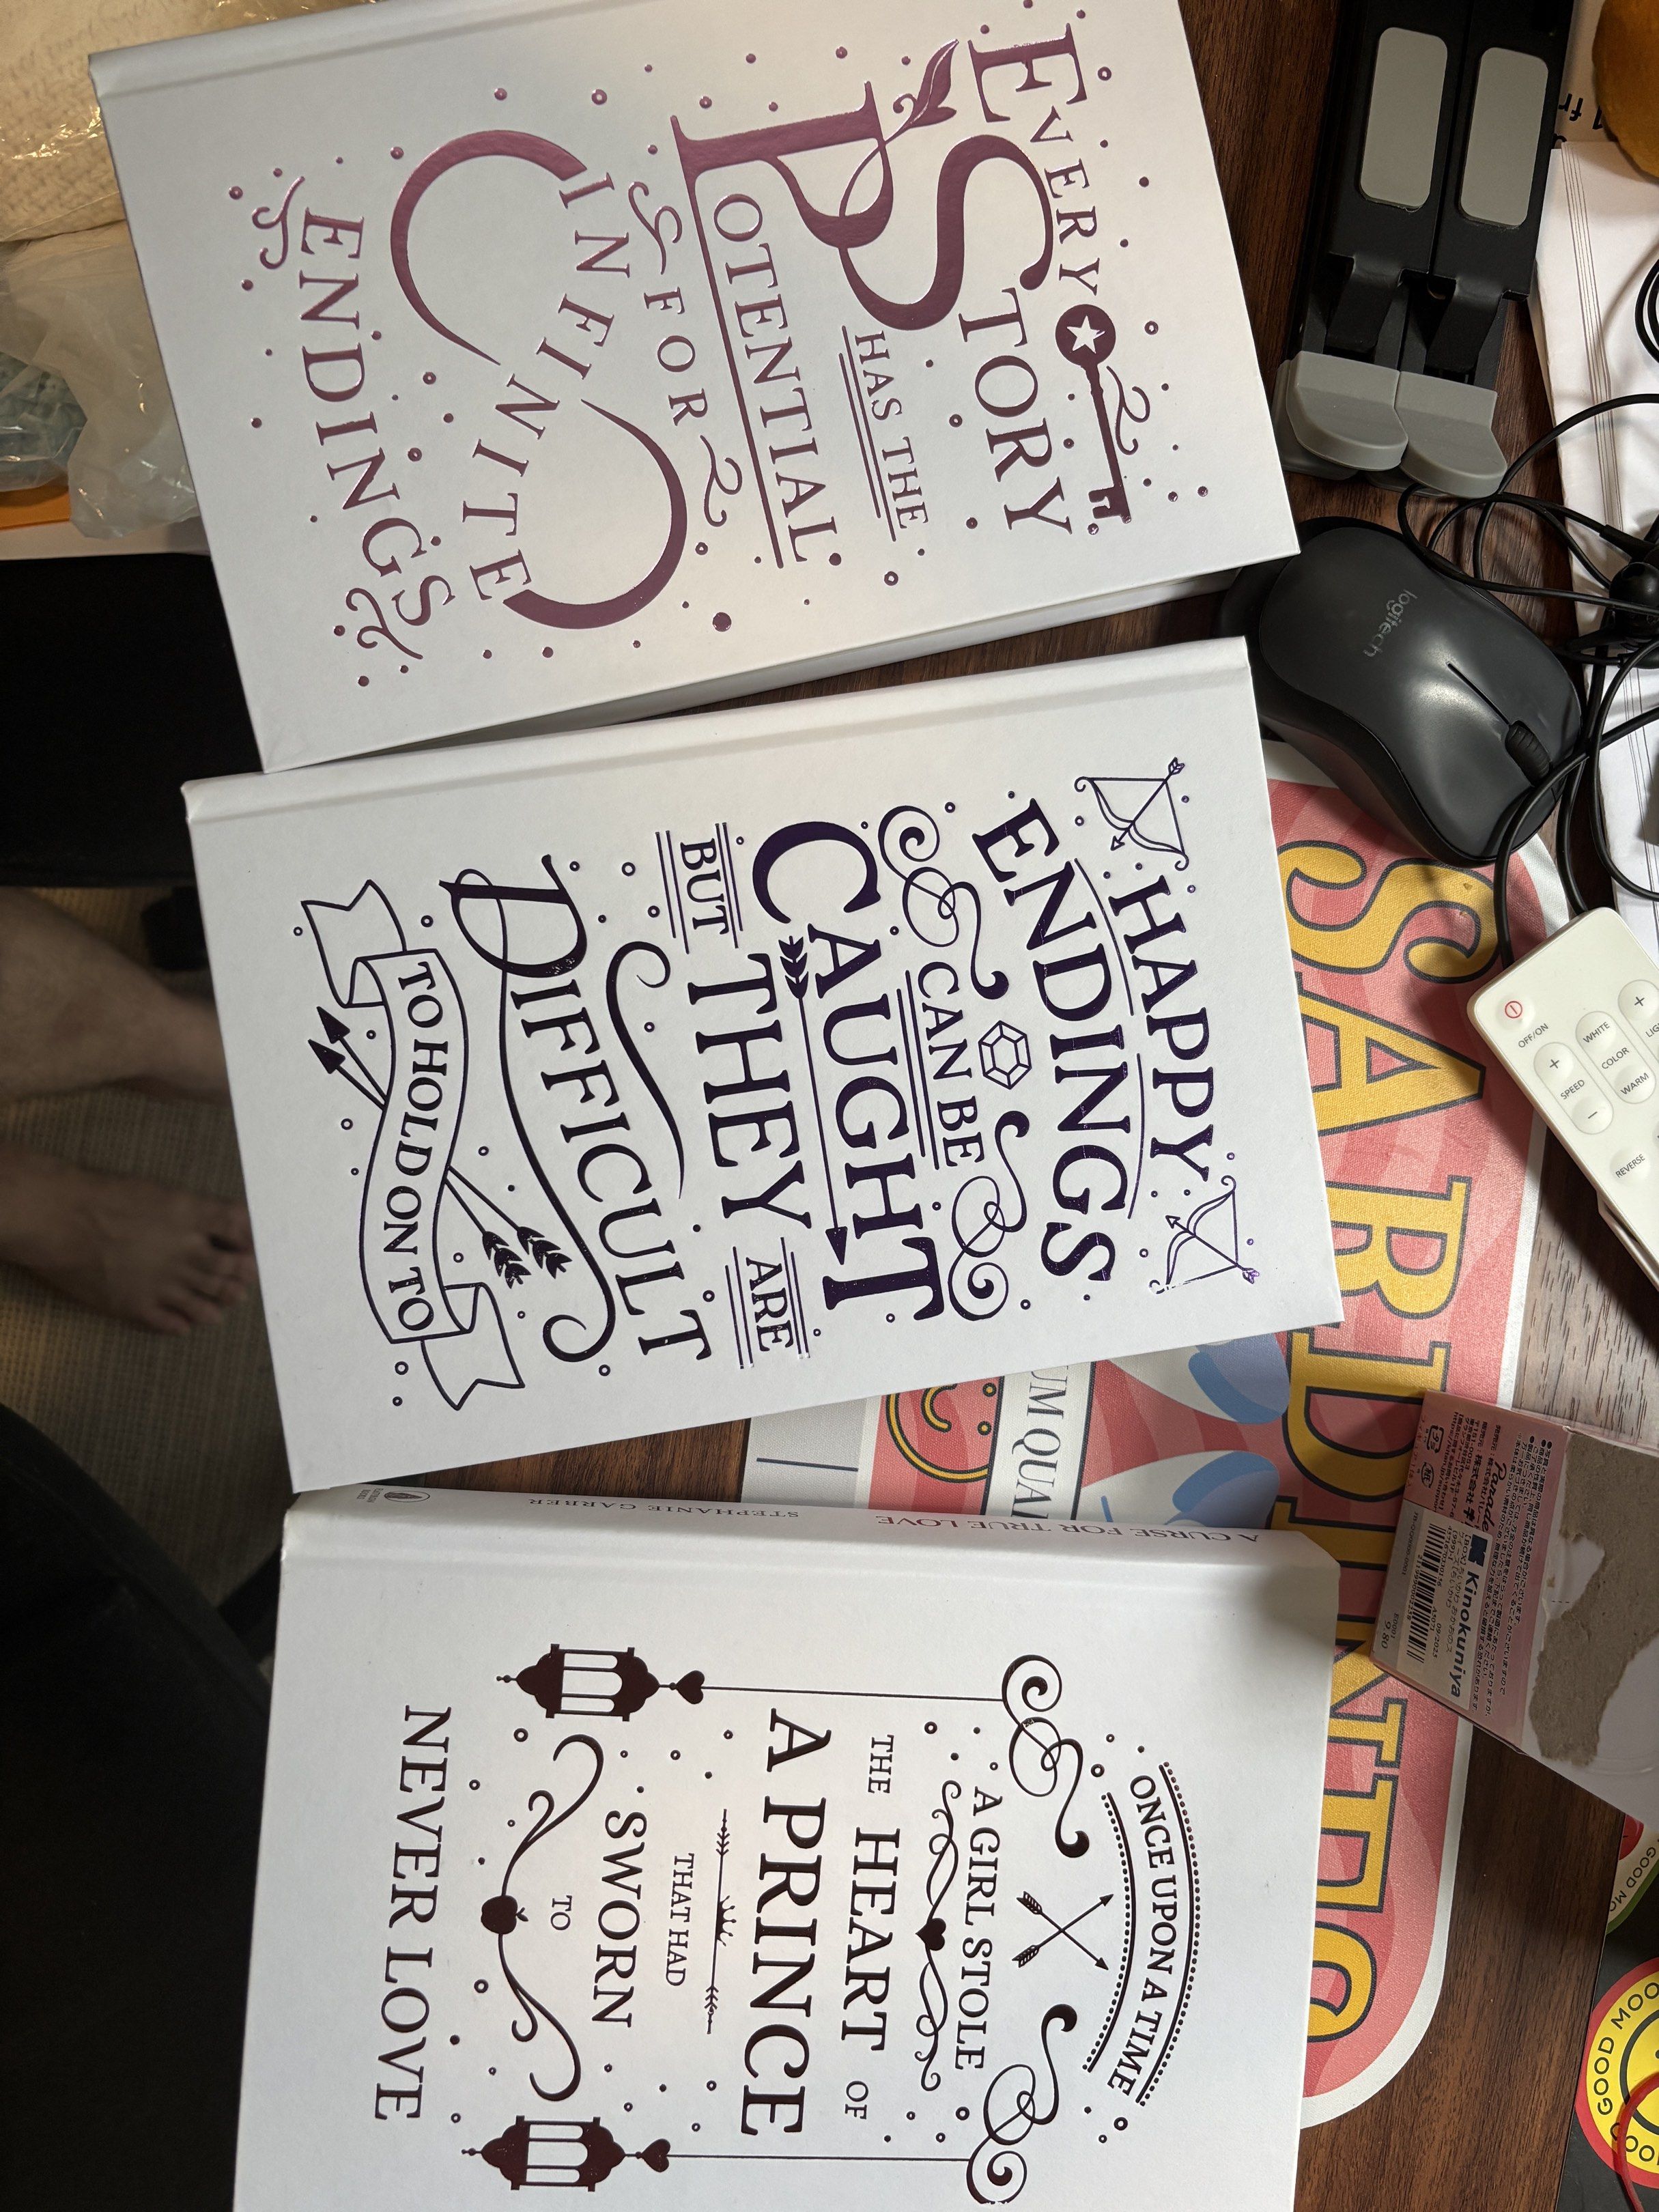 EVERY
STORY
HAS THE
POTENTIAL
FOR
INFINITE
ENDINGS
HAPPY
ENDINGS
CAN BE
CAUGHT
BUT THEY ARE
DIFFICULT
TO HOLD ON TO
A CURSE FOR TRUE LOVE
STEPHANIE GARBER
ONCE UPON A TIME
A GIRL STOLE
THE HEART OF
A PRINCE
THAT HAD
SWORN
TO
NEVER LOVE
logitech
OFF/ON
WHITE
COLOR
WARM
SPEED
REVERSE
Kinokuniya
9.80
GOOD